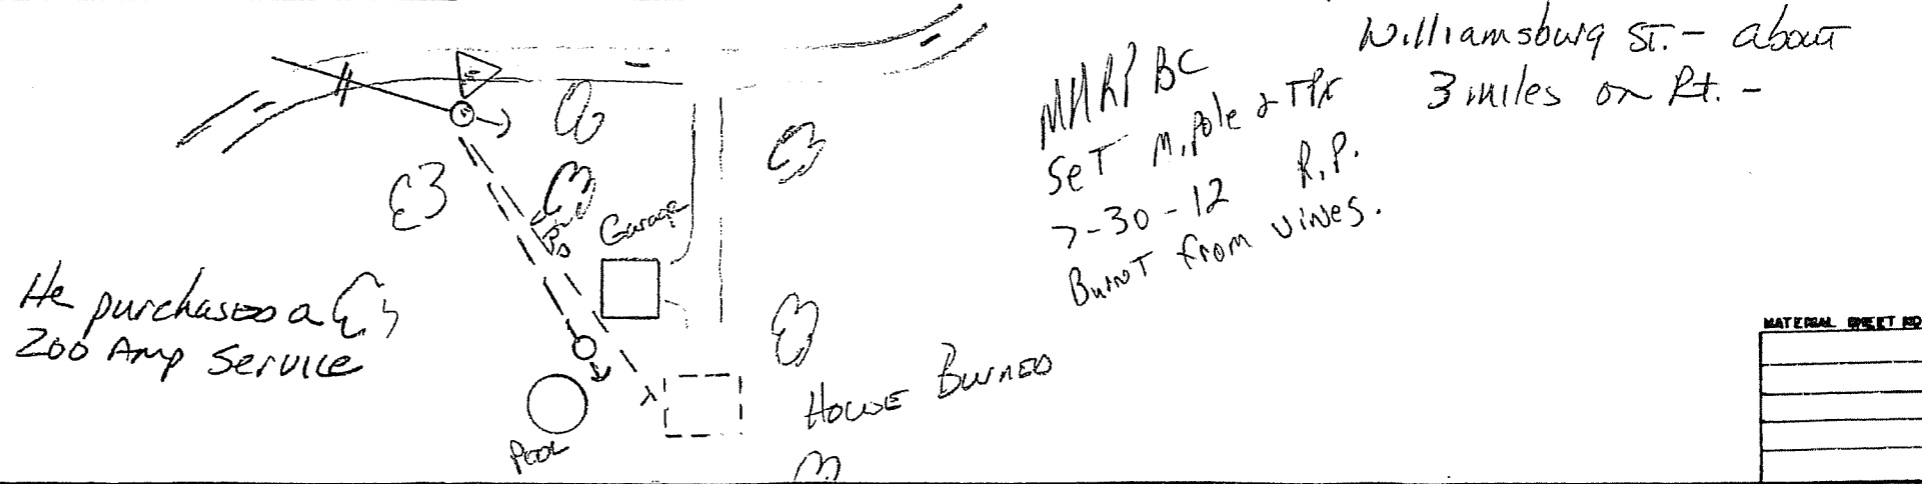 Williamsburg ST. - about
3 miles on Rt. -
BC
SET M. Pole & TPX
7-30-12 R.P.
BurnT from vines.
Garage
He purchased a
200 Amp Service
House Burned
Pool
MATERIAL SHEET NO